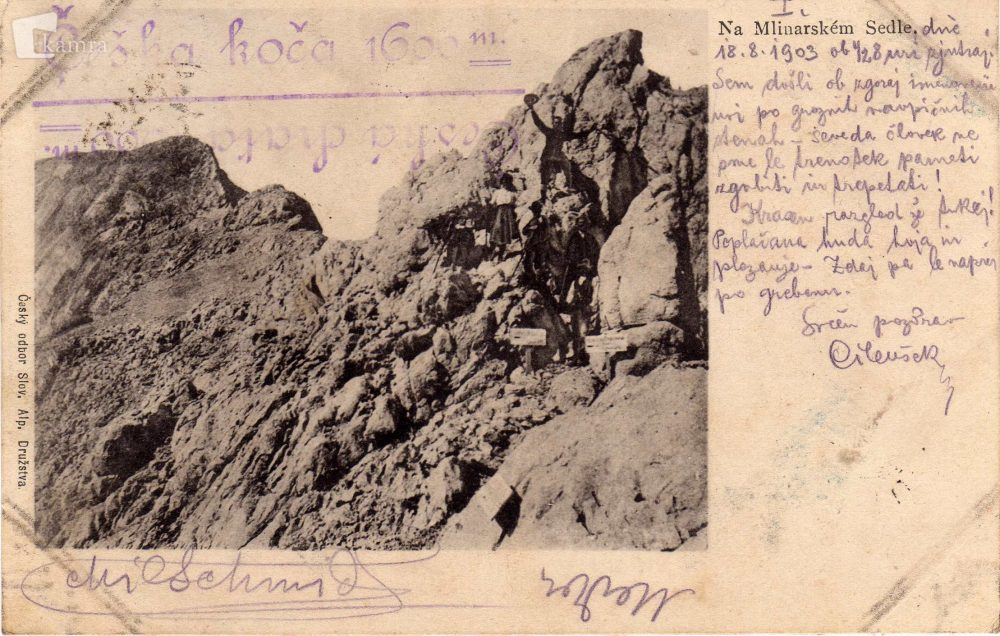 kamra
Češka koča 1600 m.
Česká chata
m.
I.
Na Mlinarském Sedle, dne
18.8.1903 ob 1/28 uri zjutraj.
Sem došli ob zgoraj imenovani
uri po groznih navpičnih
stenah – seveda človek ne
sme le trenotek pameti
zgubiti in trepetati!
Krasen razgled že tukaj!
Poplačana huda hoja in
plezanje – Zdaj pa le naprej
po grebenu.
Srčen pozdrav
Cilenšek
Český odbor Slov. Alp. Družstva.
Schmidt